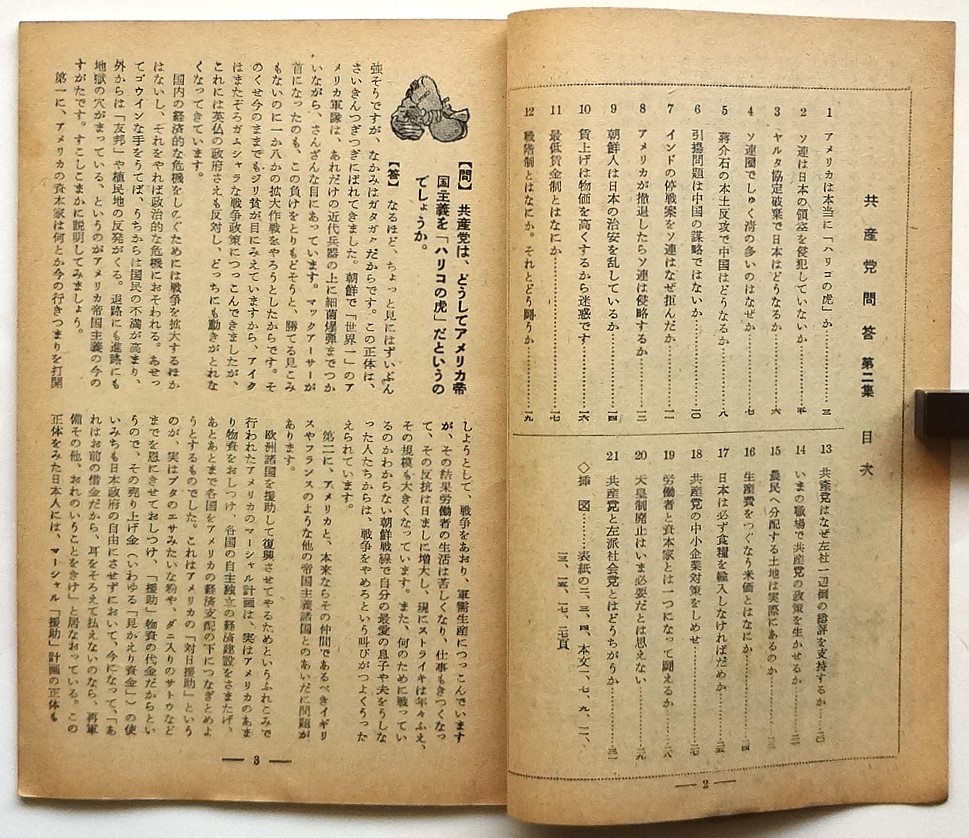 共産党問答 第二集 目次
1 アメリカは本当に「ハリコの虎」か……三
2 ソ連は日本の領空を侵犯していないか……五
3 ヤルタ協定破棄で日本はどうなるか……六
4 ソ連圏でしゅく清の多いのはなぜか……七
5 蔣介石の本土反攻で中国はどうなるか……八
6 引揚問題は中国の謀略ではないか……一〇
7 インドの停戦案をソ連はなぜ拒んだか……一一
8 アメリカが撤退したらソ連は侵略するか……一三
9 朝鮮人は日本の治安を乱しているか……一四
10 賃上げは物価を高くするから迷惑です……一六
11 最低賃金制とはなにか……一七
12 職階制とはなにか。それとどう闘うか……一九
13 共産党はなぜ左社一辺倒の総評を支持するか……二〇
14 いまの職場で共産党の政策を生かせるか……二一
15 農民へ分配する土地は実際にあるのか……二三
16 生産費をつぐなう米価とはなにか……二四
17 日本は必ず食糧を輸入しなければだめか……二五
18 共産党の中小企業対策をしめせ……二七
19 労働者と資本家とは一つになって闘えるか……二八
20 天皇制廃止はいま必要だとは思えない……二九
21 共産党と左派社会党とはどうちがうか……三一
◇挿図……表紙の二、三、四、本文二、七、九、一二、
三、一五、一七、二七頁
— 2 —
【問】 共産党は、どうしてアメリカ帝
国主義を「ハリコの虎」だというの
でしょうか。
【答】 なるほど、ちょっと見にはずいぶん
強そうですが、なかみはガタガタだからです。この正体は、
さいきんつぎつぎにばれてきました。朝鮮で「世界一」のア
メリカ軍隊は、あれだけの近代兵器の上に細菌爆弾までつか
いながら、さんざんな目にあっています。マックアーサーが
首になったのも、この負けをとりもどそうと、勝てる見こみ
もないのに一か八かの拡大作戦をやろうとしたからです。そ
のくせ今のままでもジリ貧が目にみえていますから、アイク
はまたぞろガムシャラな戦争政策につっこんできましたが、
これには英仏の政府さえも反対し、どっちにも動きがとれな
くなってきています。
国内の経済的な危機をしのぐためには戦争を拡大するほか
はないし、それをやれば政治的な危機におそわれる。あせっ
てゴウインな手をうてば、うちからは国民の不満が高まり、
外からは「友邦」や植民地の反発がくる。退路にも進路にも
地獄の穴がまっている、というのがアメリカ帝国主義の今の
すがたです。すこしこまかに説明してみましょう。
第一に、アメリカの資本家は何とか今の行きつまりを打開
しようとして、戦争をあおり、軍需生産につっこんでいます
が、その結果労働者の生活は苦しくなり、仕事もきつくなっ
て、その反抗は日ましに増大し、現にストライキは年々ふえ、
その規模も大きくなっています。また、何のために戦ってい
るのかわからない朝鮮戦線で自分の最愛の息子や夫をうしな
った人たちからは、戦争をやめろという叫びがつよくうった
えられています。
第二に、アメリカと、本来ならその仲間であるべきイギリ
スやフランスのような他の帝国主義諸国とのあいだに問題が
あります。
欧洲諸国を援助して復興させてやるためというふれこみで
行われたアメリカのマーシャル計画は、実はアメリカのあま
り物資をおしつけ、各国の自主独立の経済建設をさまたげ、
あとあとまで各国をアメリカの経済支配の下につなぎとめよ
うとするものでした。これはアメリカの「対日援助」という
のが、実はブタのエサみたいな粉や、ダニ入りのサトウなど
までを恩にきせておしつけ、「援助」物資の代金だからとい
うので、その売り上げ金（いわゆる「見かえり資金」）の使
いみちも日本政府の自由にさせずにおいて、今になって、「あ
れはお前の借金だから、耳をそろえて払えないのなら、再軍
備その他、おれのいうことをきけ」と居なおっている。この
正体をみた日本人には、マーシャル「援助」計画の正体も
— 3 —